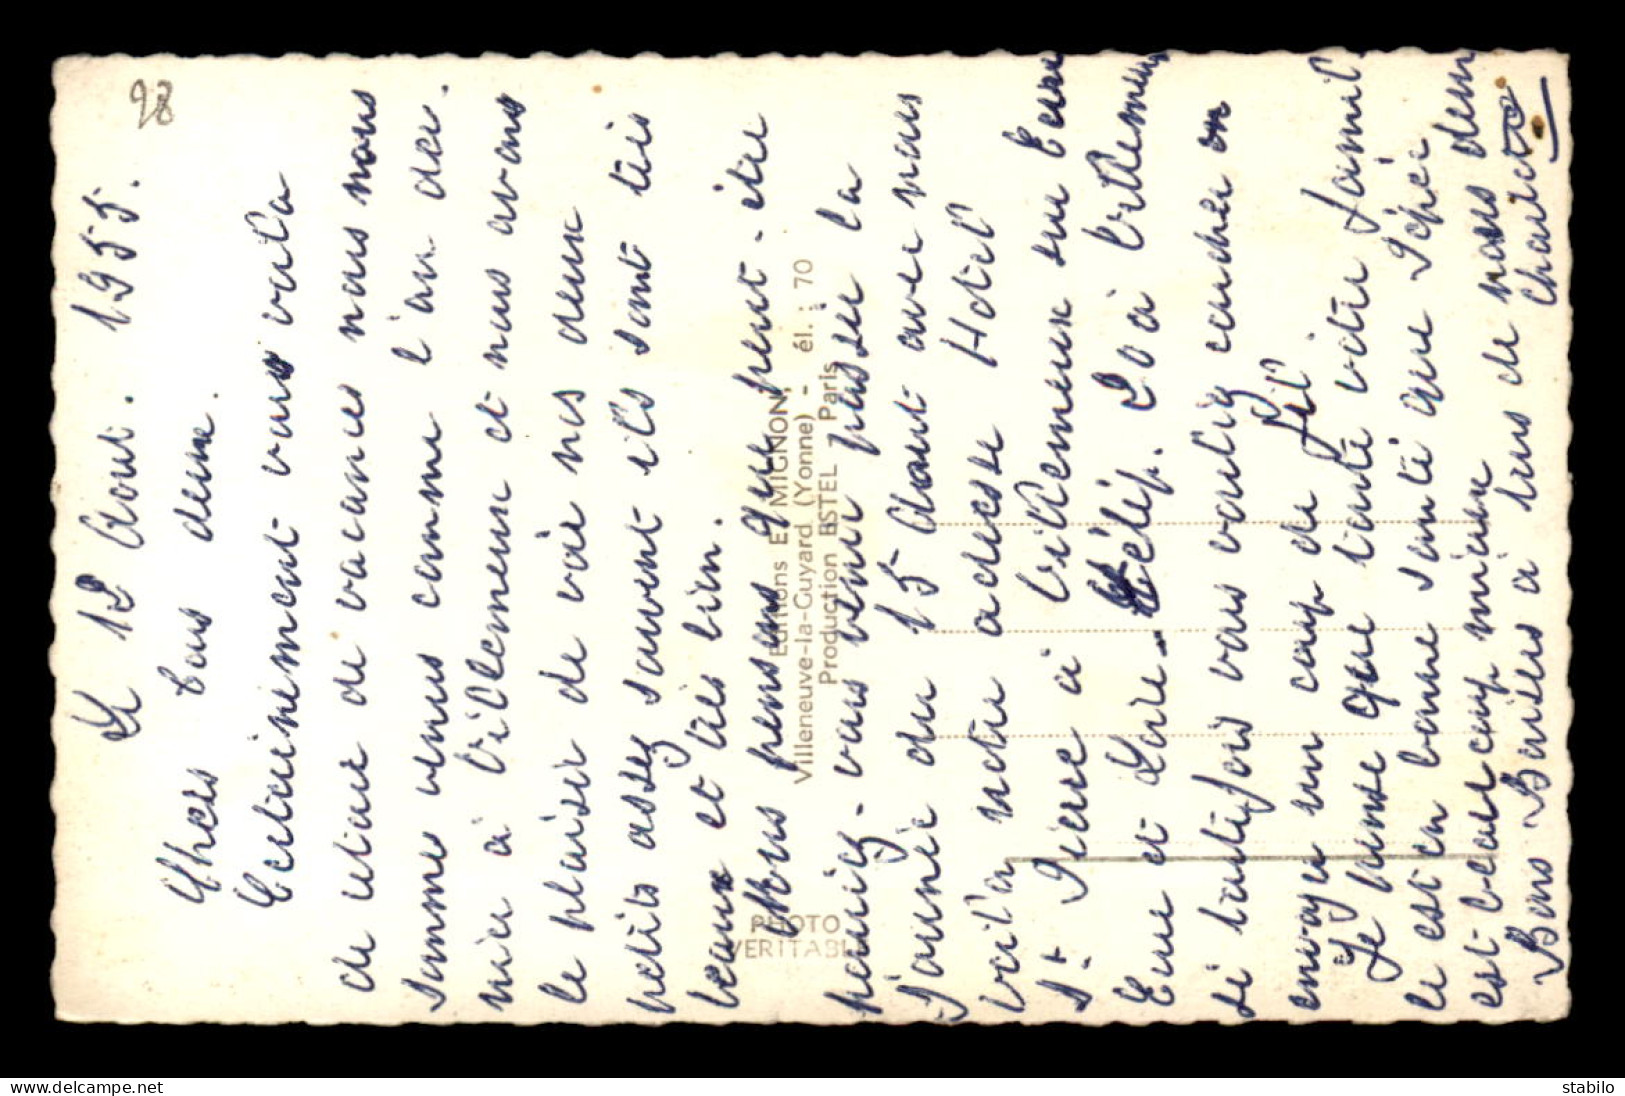 28
Le 12 Aout. 1955.
Chers tous deux.
Certainement vous voila
de retour de vacances nous nous
somme venus comme l'an der.
nier à Villemeux et nous avons
le plaisir de voir nos deux
petits assez souvent ils sont très
beaux et très bien.
Nous pensons que peut-être
pouriez-vous venir passer la
journée du 15 Aout avec nous
voila notre adresse Hotel
St Pierre à Villemeux sur Eure
Eure et Loire - Télép. 20 à Villemeux
si toutefois vous vouliez coucher on
envoyer un coup de fil
Je pense que toute votre famille
le est en bonne santé que Pépé
est beaucoup mieux
Bons Baisers à tous de nous deux
Charlotte
Editions E. MIGNON,
Villeneuve-la-Guyard (Yonne) - él. : 70
Production ESTEL Paris
PHOTO
VERITABLE
www.delcampe.net
stabilo